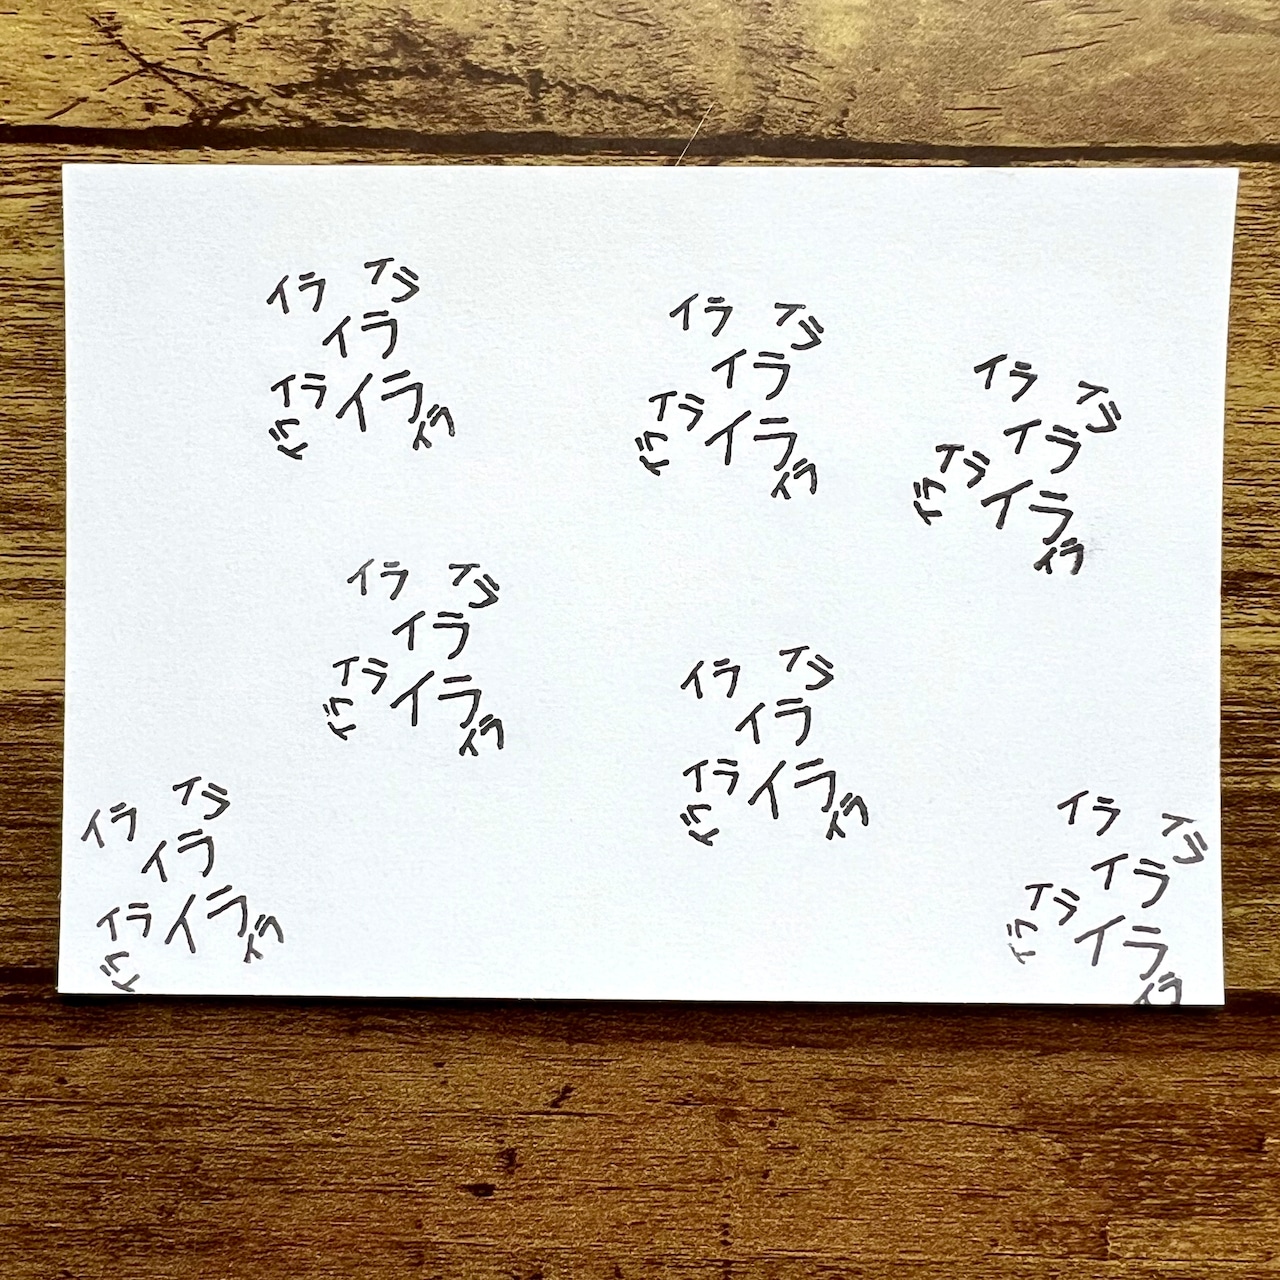 イラ イラ
イラ
イラ イラ
イラ イラ
イラ イラ
イラ
イラ イラ
イラ イラ
イラ イラ
イラ
イラ イラ
イラ イラ
イラ イラ
イラ
イラ イラ
イラ イラ
イラ イラ
イラ
イラ イラ
イラ イラ
イラ イラ
イラ
イラ イラ
イラ イラ
イラ イラ
イラ
イラ イラ
イラ イラ